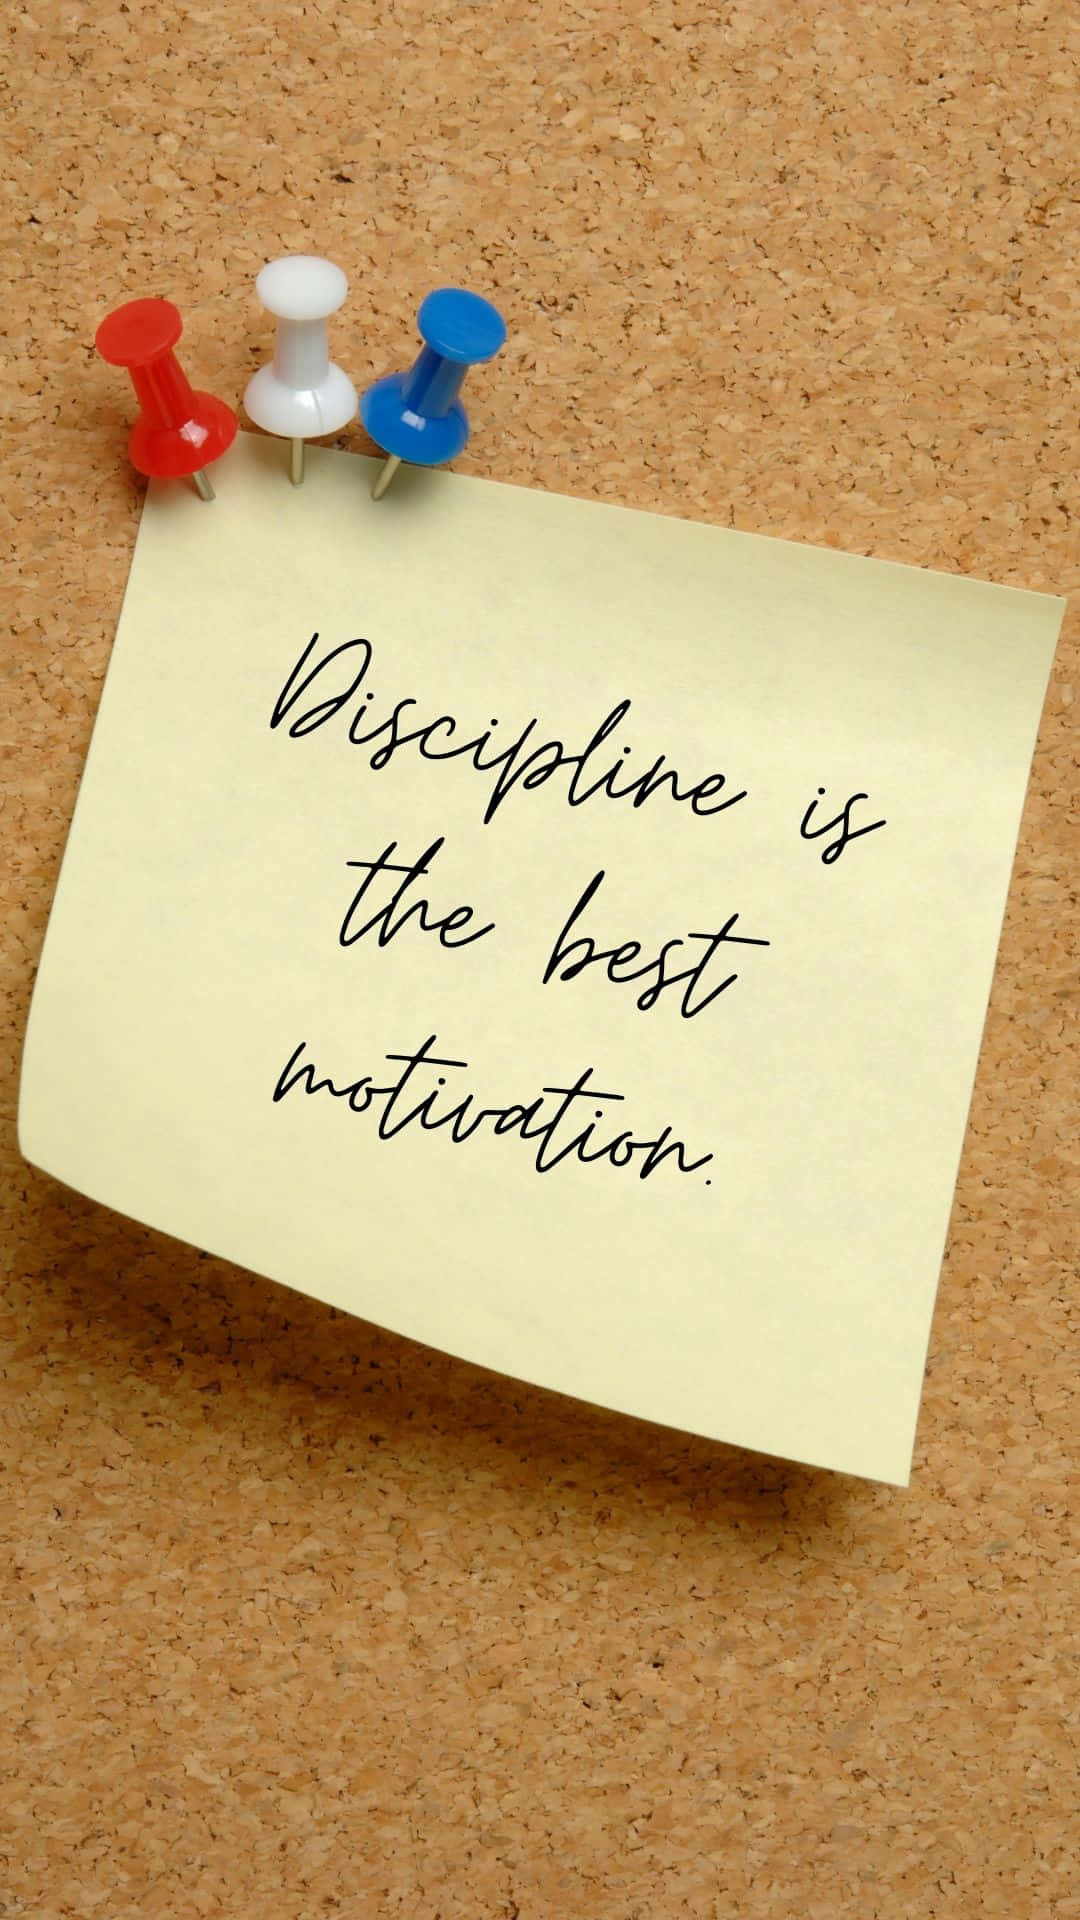 Discipline is
the best
motivation.